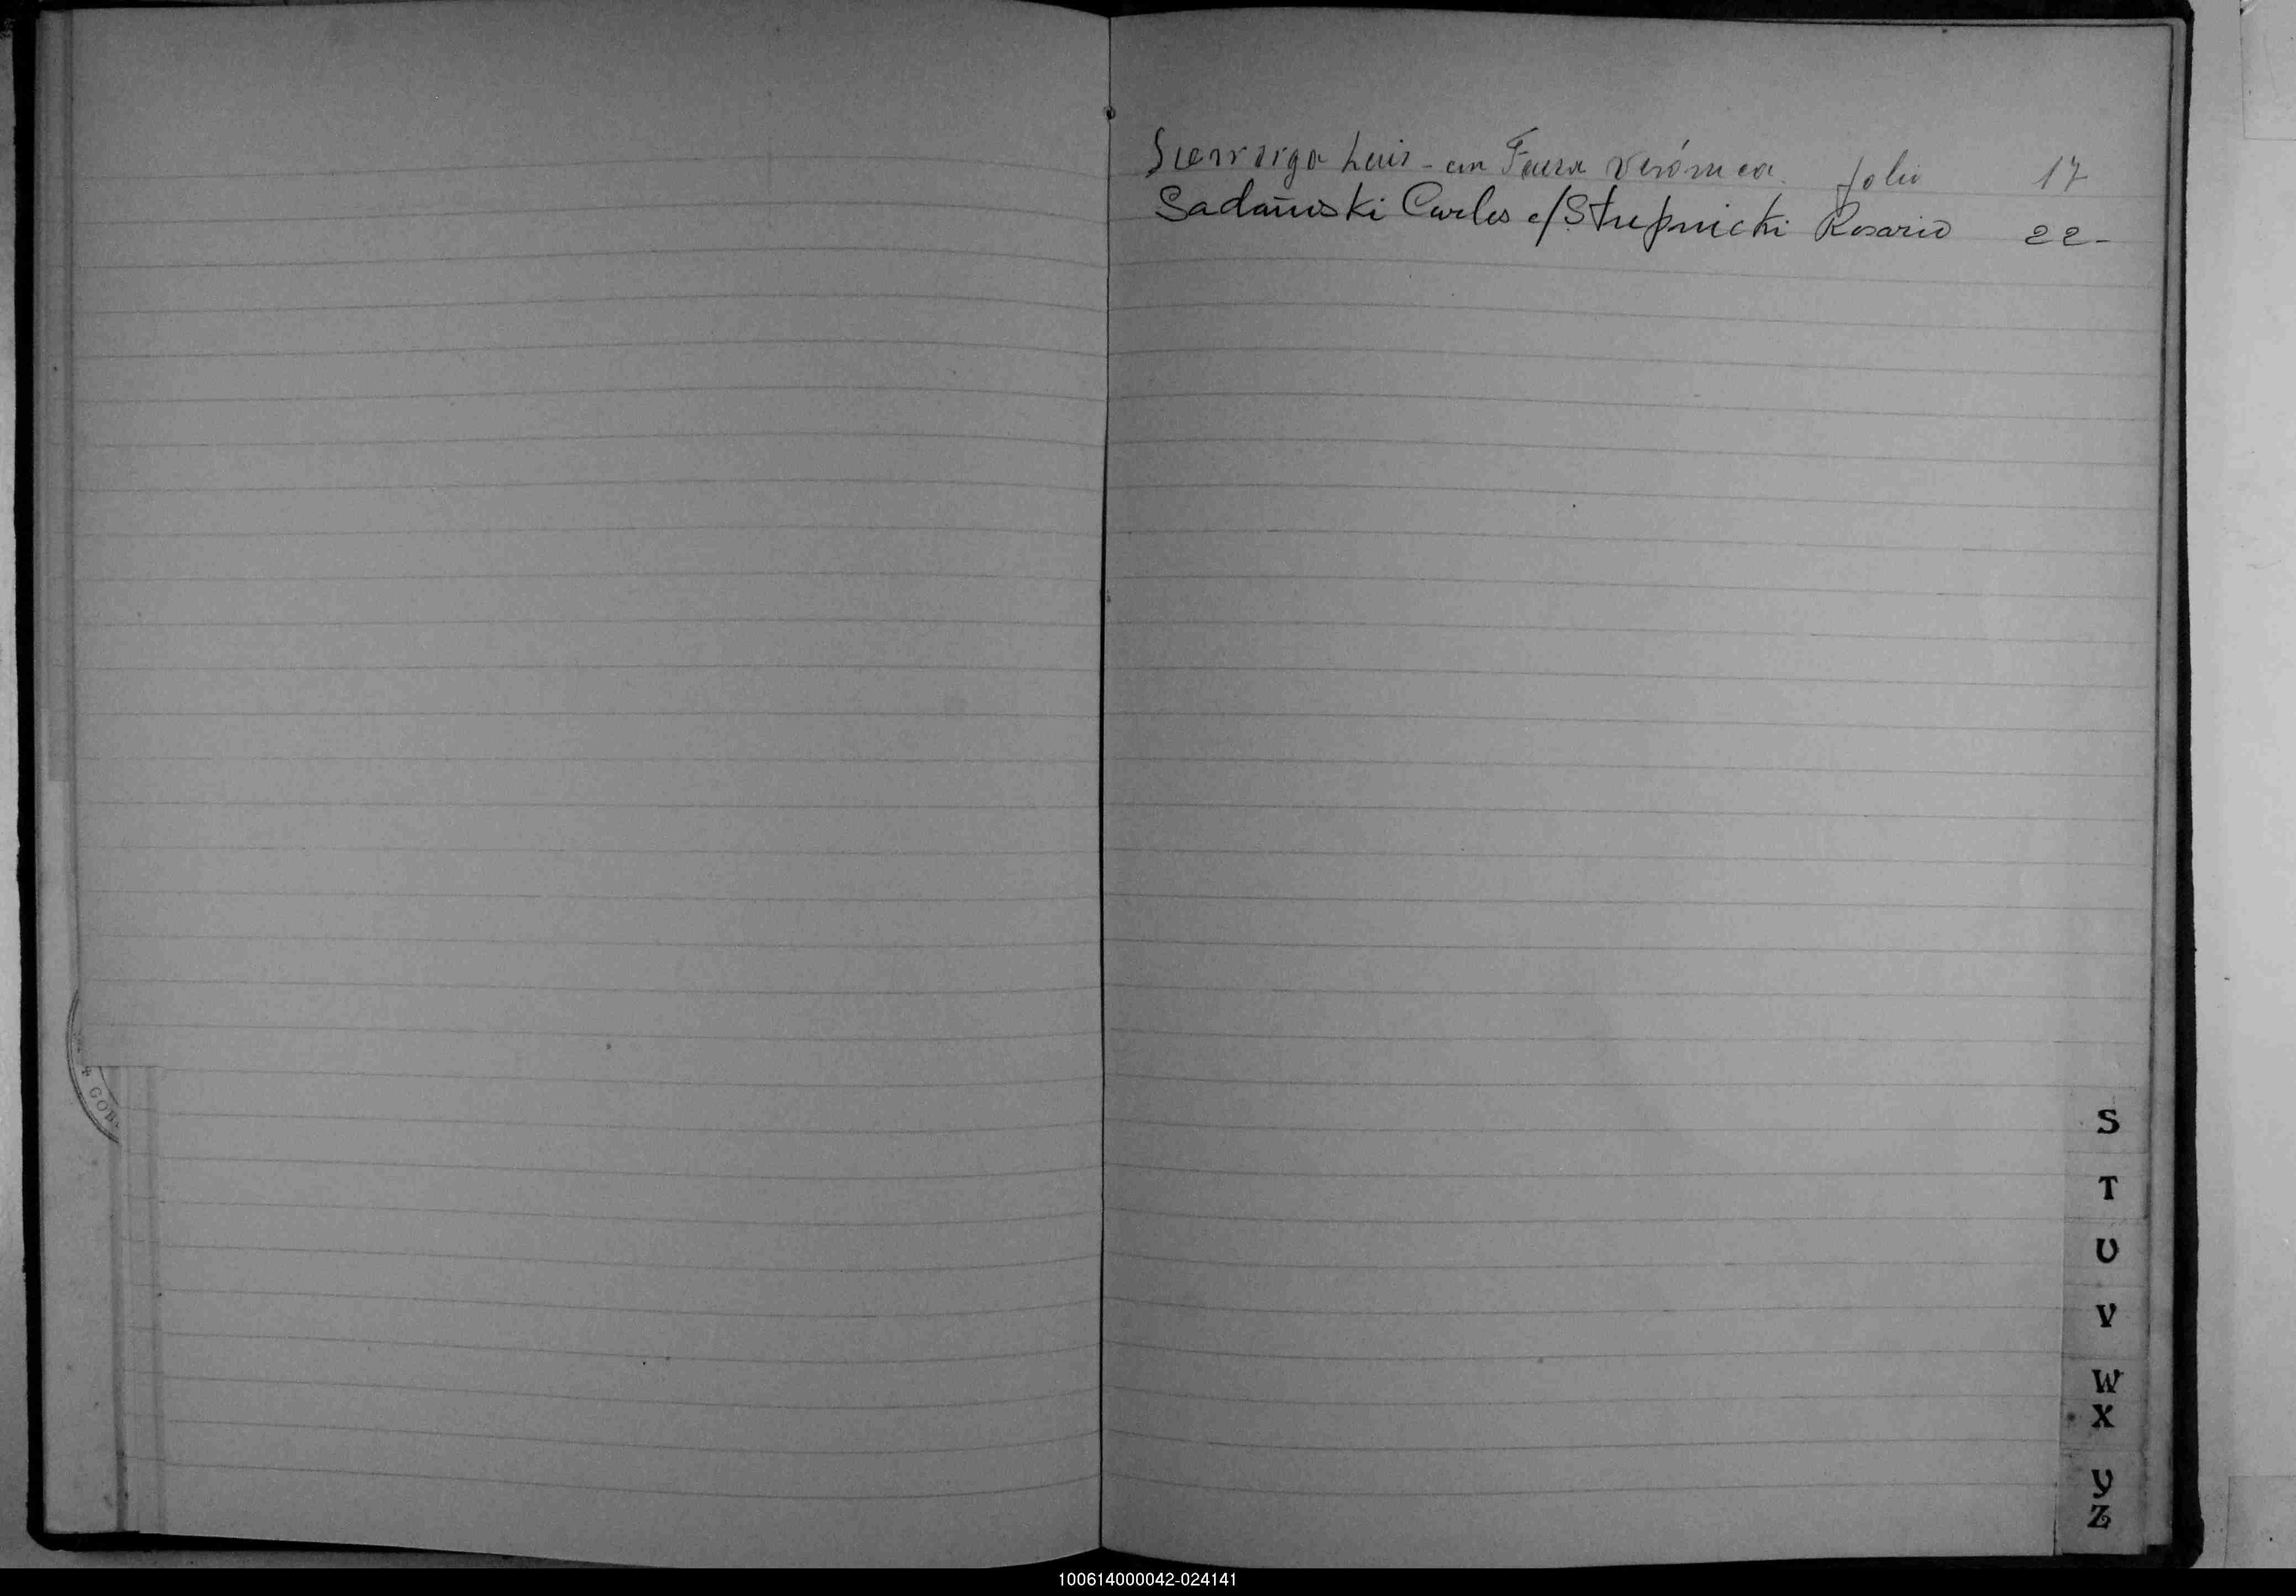 Luis - con Faura Verónica. folio 17
Sadañiski Carlos c/ Stupnicki Rosario 22-
COR
S
T
U
V
W
X
Y
Z
100614000042-024141